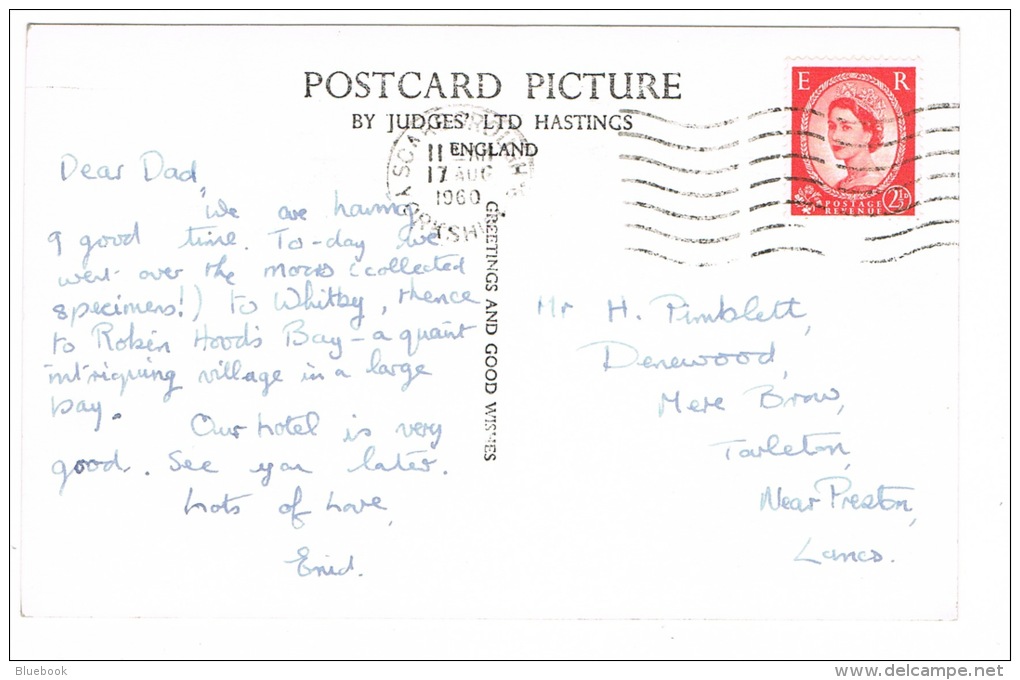 POSTCARD PICTURE
BY JUDGES' LTD HASTINGS
ENGLAND
E R
POSTAGE
REVENUE
2½D
SCARBOROUGH
YORKSHIRE
17 AUG
1960
GREETINGS AND GOOD WISHES
Dear Dad,
We are having
a good time. To-day we
went over the moors (collected
specimens!) to Whitby, thence
to Robin Hood's Bay - a quaint
intriguing village in a large
bay.
Our hotel is very
good. See you later.
Lots of Love,
Enid.
Mr H. Pimblett,
Denewood,
Mere Brow,
Tarleton,
Near Preston,
Lancs.
Bluebook
delcampe.net